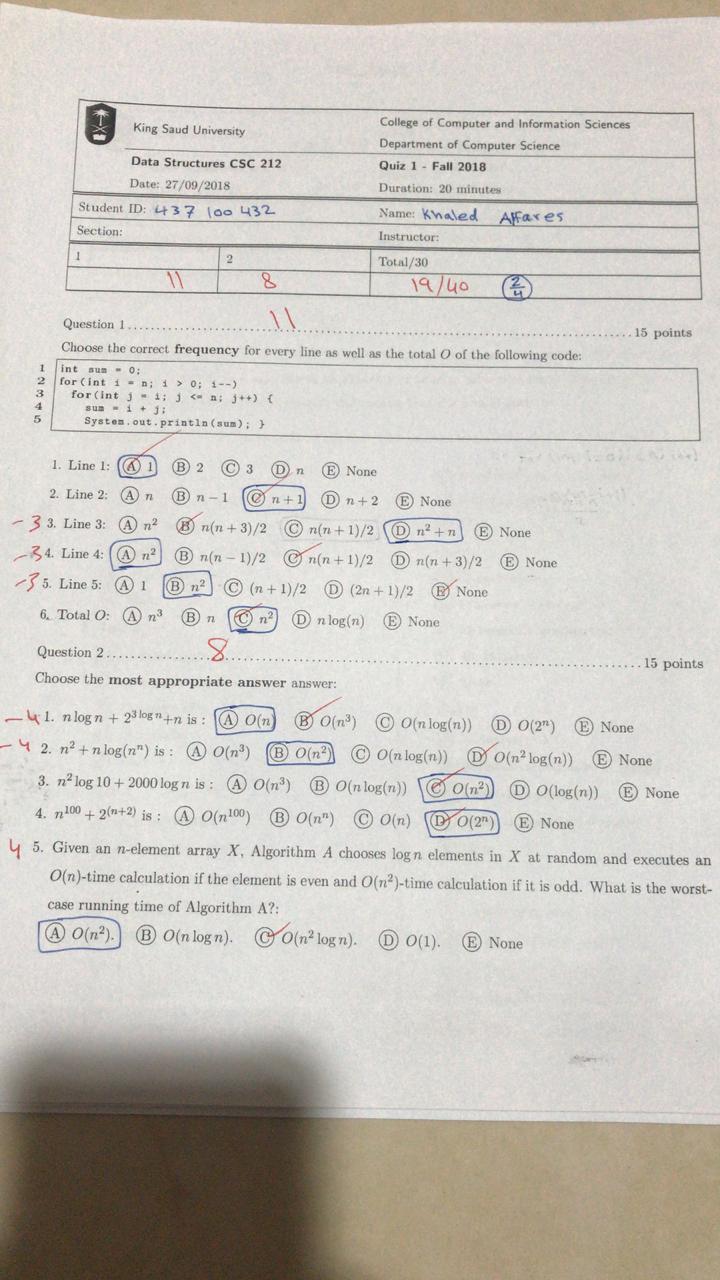 King Saud University
College of Computer and Information Sciences
Department of Computer Science
Data Structures CSC 212
Quiz 1 - Fall 2018
Date: 27/09/2018
Duration: 20 minutes
Student ID: 437 100 432
Name: Khaled Affares
Section:
Instructor:
1 2 Total/30
11 8 19/40 2/4
11
Question 1 15 points
Choose the correct frequency for every line as well as the total O of the following code:
1 int sum = 0;
2 for(int i = n; i > 0; i--)
3 for(int j = i; j <= n; j++) {
4 sum = i + j;
5 System.out.println(sum); }
1. Line 1: Ⓐ 1 Ⓑ 2 Ⓒ 3 Ⓓ n Ⓔ None
2. Line 2: Ⓐ n Ⓑ n − 1 Ⓒ n + 1 Ⓓ n + 2 Ⓔ None
-3 3. Line 3: Ⓐ n² Ⓑ n(n + 3)/2 Ⓒ n(n + 1)/2 Ⓓ n² + n Ⓔ None
-3 4. Line 4: Ⓐ n² Ⓑ n(n − 1)/2 Ⓒ n(n + 1)/2 Ⓓ n(n + 3)/2 Ⓔ None
-3 5. Line 5: Ⓐ 1 Ⓑ n² Ⓒ (n + 1)/2 Ⓓ (2n + 1)/2 Ⓔ None
6. Total O: Ⓐ n³ Ⓑ n Ⓒ n² Ⓓ n log(n) Ⓔ None
8
Question 2 15 points
Choose the most appropriate answer answer:
-4 1. n log n + 2^{3 log n} + n is : Ⓐ O(n) Ⓑ O(n³) Ⓒ O(n log(n)) Ⓓ O(2ⁿ) Ⓔ None
-4 2. n² + n log(nⁿ) is : Ⓐ O(n³) Ⓑ O(n²) Ⓒ O(n log(n)) Ⓓ O(n² log(n)) Ⓔ None
3. n² log 10 + 2000 log n is : Ⓐ O(n³) Ⓑ O(n log(n)) Ⓒ O(n²) Ⓓ O(log(n)) Ⓔ None
4. n¹⁰⁰ + 2^{(n+2)} is : Ⓐ O(n¹⁰⁰) Ⓑ O(nⁿ) Ⓒ O(n) Ⓓ O(2ⁿ) Ⓔ None
4 5. Given an n-element array X, Algorithm A chooses log n elements in X at random and executes an
O(n)-time calculation if the element is even and O(n²)-time calculation if it is odd. What is the worst-
case running time of Algorithm A?:
Ⓐ O(n²). Ⓑ O(n log n). Ⓒ O(n² log n). Ⓓ O(1). Ⓔ None